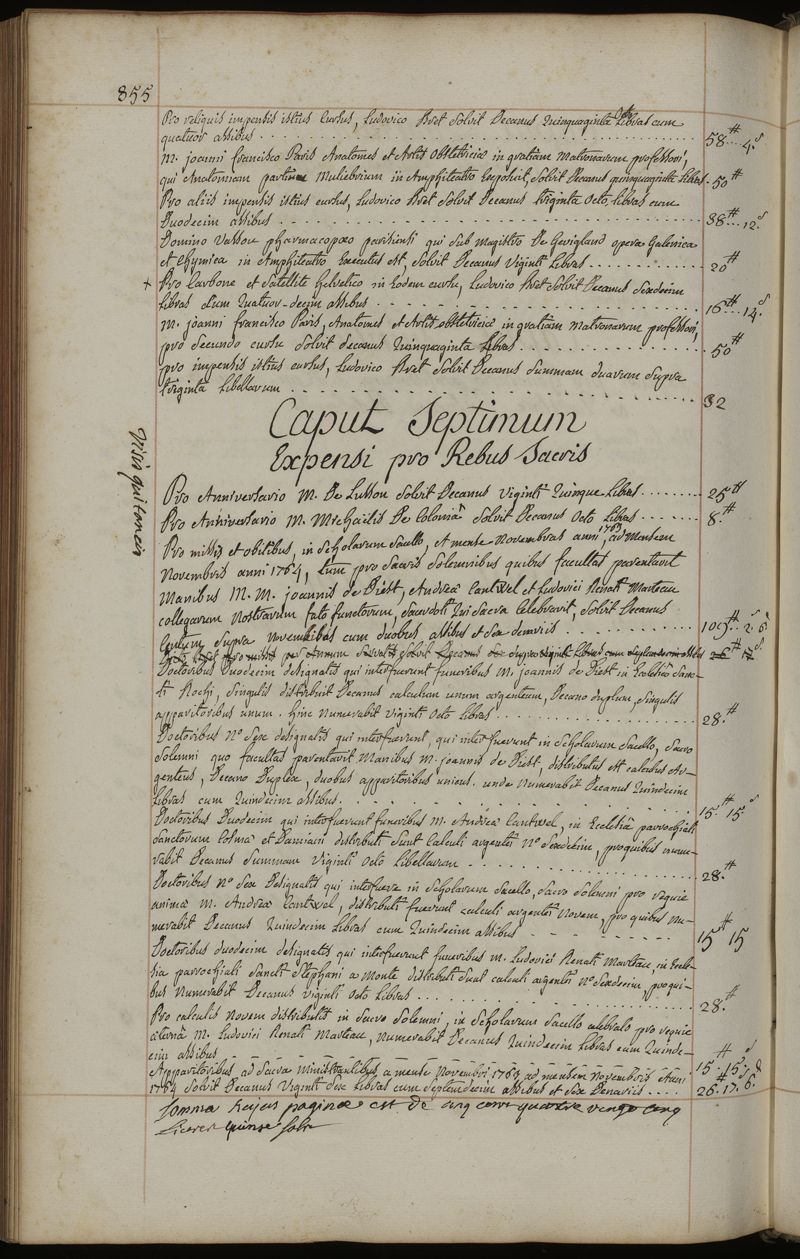 855
Pro reliquis impensis istius Cursus, Ludovico Pret Solvit Decanus Quinquaginta Octo Libras cum
quatuor assibus . . . . 58.# . . . 4.s
M. joanni francisco Paris Anatomes et Artis obstetriciæ in gratiam Matronarum professori,
qui Anatomiam partium Muliebrium in Amphiteatro Exposuit, Solvit Decanus quinquaginta Libras . 50#
Pro aliis impensis istius cursus, Ludovico Pret Solvit Decanus triginta Octo Libras cum
Duodecim assibus . . . . 38# . . . 12.s
Domino Vassou pharmacopæo parisiensi qui sub magistro De Gevigland opera Galenica
et Chymica in Amphiteatro Executus est, Solvit Decanus Viginti Libras . . . . 20#
+ Pro Carbone et Satellite helvetico in Eodem cursu, Ludovico Pret Solvit Decanus Sexdecim
Libras cum Quatuor-decim assibus . . . . 16# . . . 14.s
M. joanni francisco Paris, Anatomes et Artis obstetriciæ in gratiam Matronarum professori,
pro Secundo cursu Solvit decanus Quinquaginta Libras . . . . 50#
pro impensis istius cursus, Ludovico Pret Solvit Decanus Summam duarum Supra
triginta Libellarum . . . . 32
Caput Septimum
Expensi pro Rebus Sacris
Visis quitancis
Pro Anniversario M. De Lusson Solvit Decanus Viginti Quinque Libras . . . . 25#
Pro Anniversario M. Michaëlis De Coloniâ Solvit Decanus Octo Libras . . . . 8.#
Pro missis et obitibus, in Scholarum Sacello, et mense Novembris anni 1763, ad Mensem
Novembris anni 1764, tum pro Sacris Solemnibus quibus facultas parentavit
Manibus M. M. joannis de Diest, Andreæ Cantwel et Ludovici Renati Marteau
collegarum Nostrorum fato functorum, Sacerdoti Qui Sacra Celebravit, Solvit Decanus
Centum Supra novem Libras cum duobus assibus et Sex denariis . . . . 109# . . 2.s 6.
Doctoribus Duodecim designatis qui interfuerunt funeribus M. joannis de Diest in Ecclesiâ Sanc-
ti Rochi, Singulis distribuit Decanus calculum unum argenteum, Decano duplum, Singulis
apparitoribus unum. hinc Numerabit Viginti Octo Libras . . . . 28.#
Doctoribus No Sex designatis qui interfuerunt, qui interfuerunt in Scholarum Sacello, Sacro
Solemni quo facultas parentavit Manibus M. joannis de Diest, distributus est calculus Ar-
genteus, Decano Duplex, duobus apparitoribus unicus. unde Numerabit Decanus Quindecim
Libras cum Quindecim assibus. . . . 15.# 15.s
Doctoribus Duodecim qui interfuerunt funeribus M. Andreæ Cantwel, in Ecclesiâ parrochiali
Sanctorum Cosmæ et Damiani distributi Sunt Calculi argentei No Sexdecim, pro quibus nume-
rabit Decanus Summam Viginti Octo Libellarum . . . . 28.#
Doctoribus No Sex Designatis qui interfuere in Scholarum Sacello, Sacro Solemni pro requie
animæ M. Andreæ Cantwel, distributi fuerunt calculi argentei Novem, pro quibus nu-
merabit Decanus Quindecim Libras cum Quindecim assibus . . . . 15# 15
Doctoribus duodecim designatis qui interfuerunt funeribus M. Ludovici Renati Marteau, in Eccle-
sia parrochiali Sancti Stephani a Monte distributi Sunt calculi argentei No Sexdecim, pro qui-
bus Numerabit Decanus Viginti Octo Libras . . . . 28.#
Pro calculis Novem distributis in Sacro Solemni, in Scholarum Sacello celebrato pro requie
æternâ M. Ludovici Renati Marteau, numerabit Decanus Quindecim Libras cum Quinde-
cim assibus . . . . 15.# 15.s
Apparitoribus ad Sacra Ministrantibus a mense Novembri 1763 ad mensem Novembris Anni
1764 Solvit Decanus Viginti Sex Libras cum Septemdecim assibus et Sex Denariis . . . . 26.# 17.s 6.d
Somma hujus paginæ est de cinq cens quatre vingt cinq
Livres quinse sols